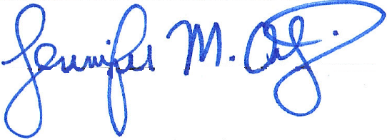 Jennifer M.